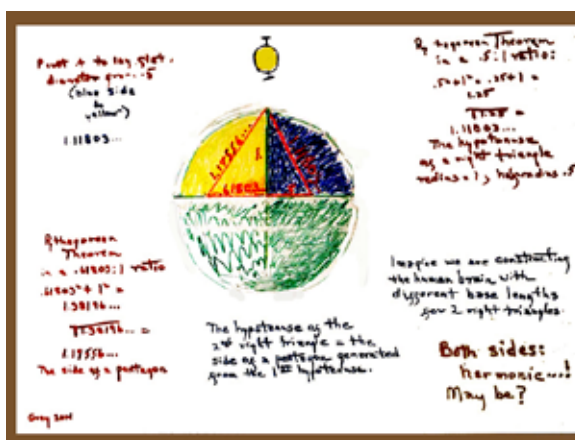 Pivot A to leg
diameter from .5
(blue side
to
yellow)
1.11803...
Pythagorean Theorem
in a .5:1 ratio:
.5²+1² = .25+1 =
1.25
√1.25 =
1.11803...
The hypotenuse
of a right triangle
radius = 1, half radius .5
1.17556...
1
.61803
.5
Pythagorean
Theorem
in a .61803:1 ratio
.61803²+ 1² =
1.38196...
√1.38196... =
1.17556...
The side of a pentagon
The hypotenuse of the
2nd right triangle = the
side of a pentagon generated
from the 1st hypotenuse.
Imagine we are constructing
the human brain with
different base lengths
for 2 right triangles.
Both sides:
harmonic...!
May be?
Greg